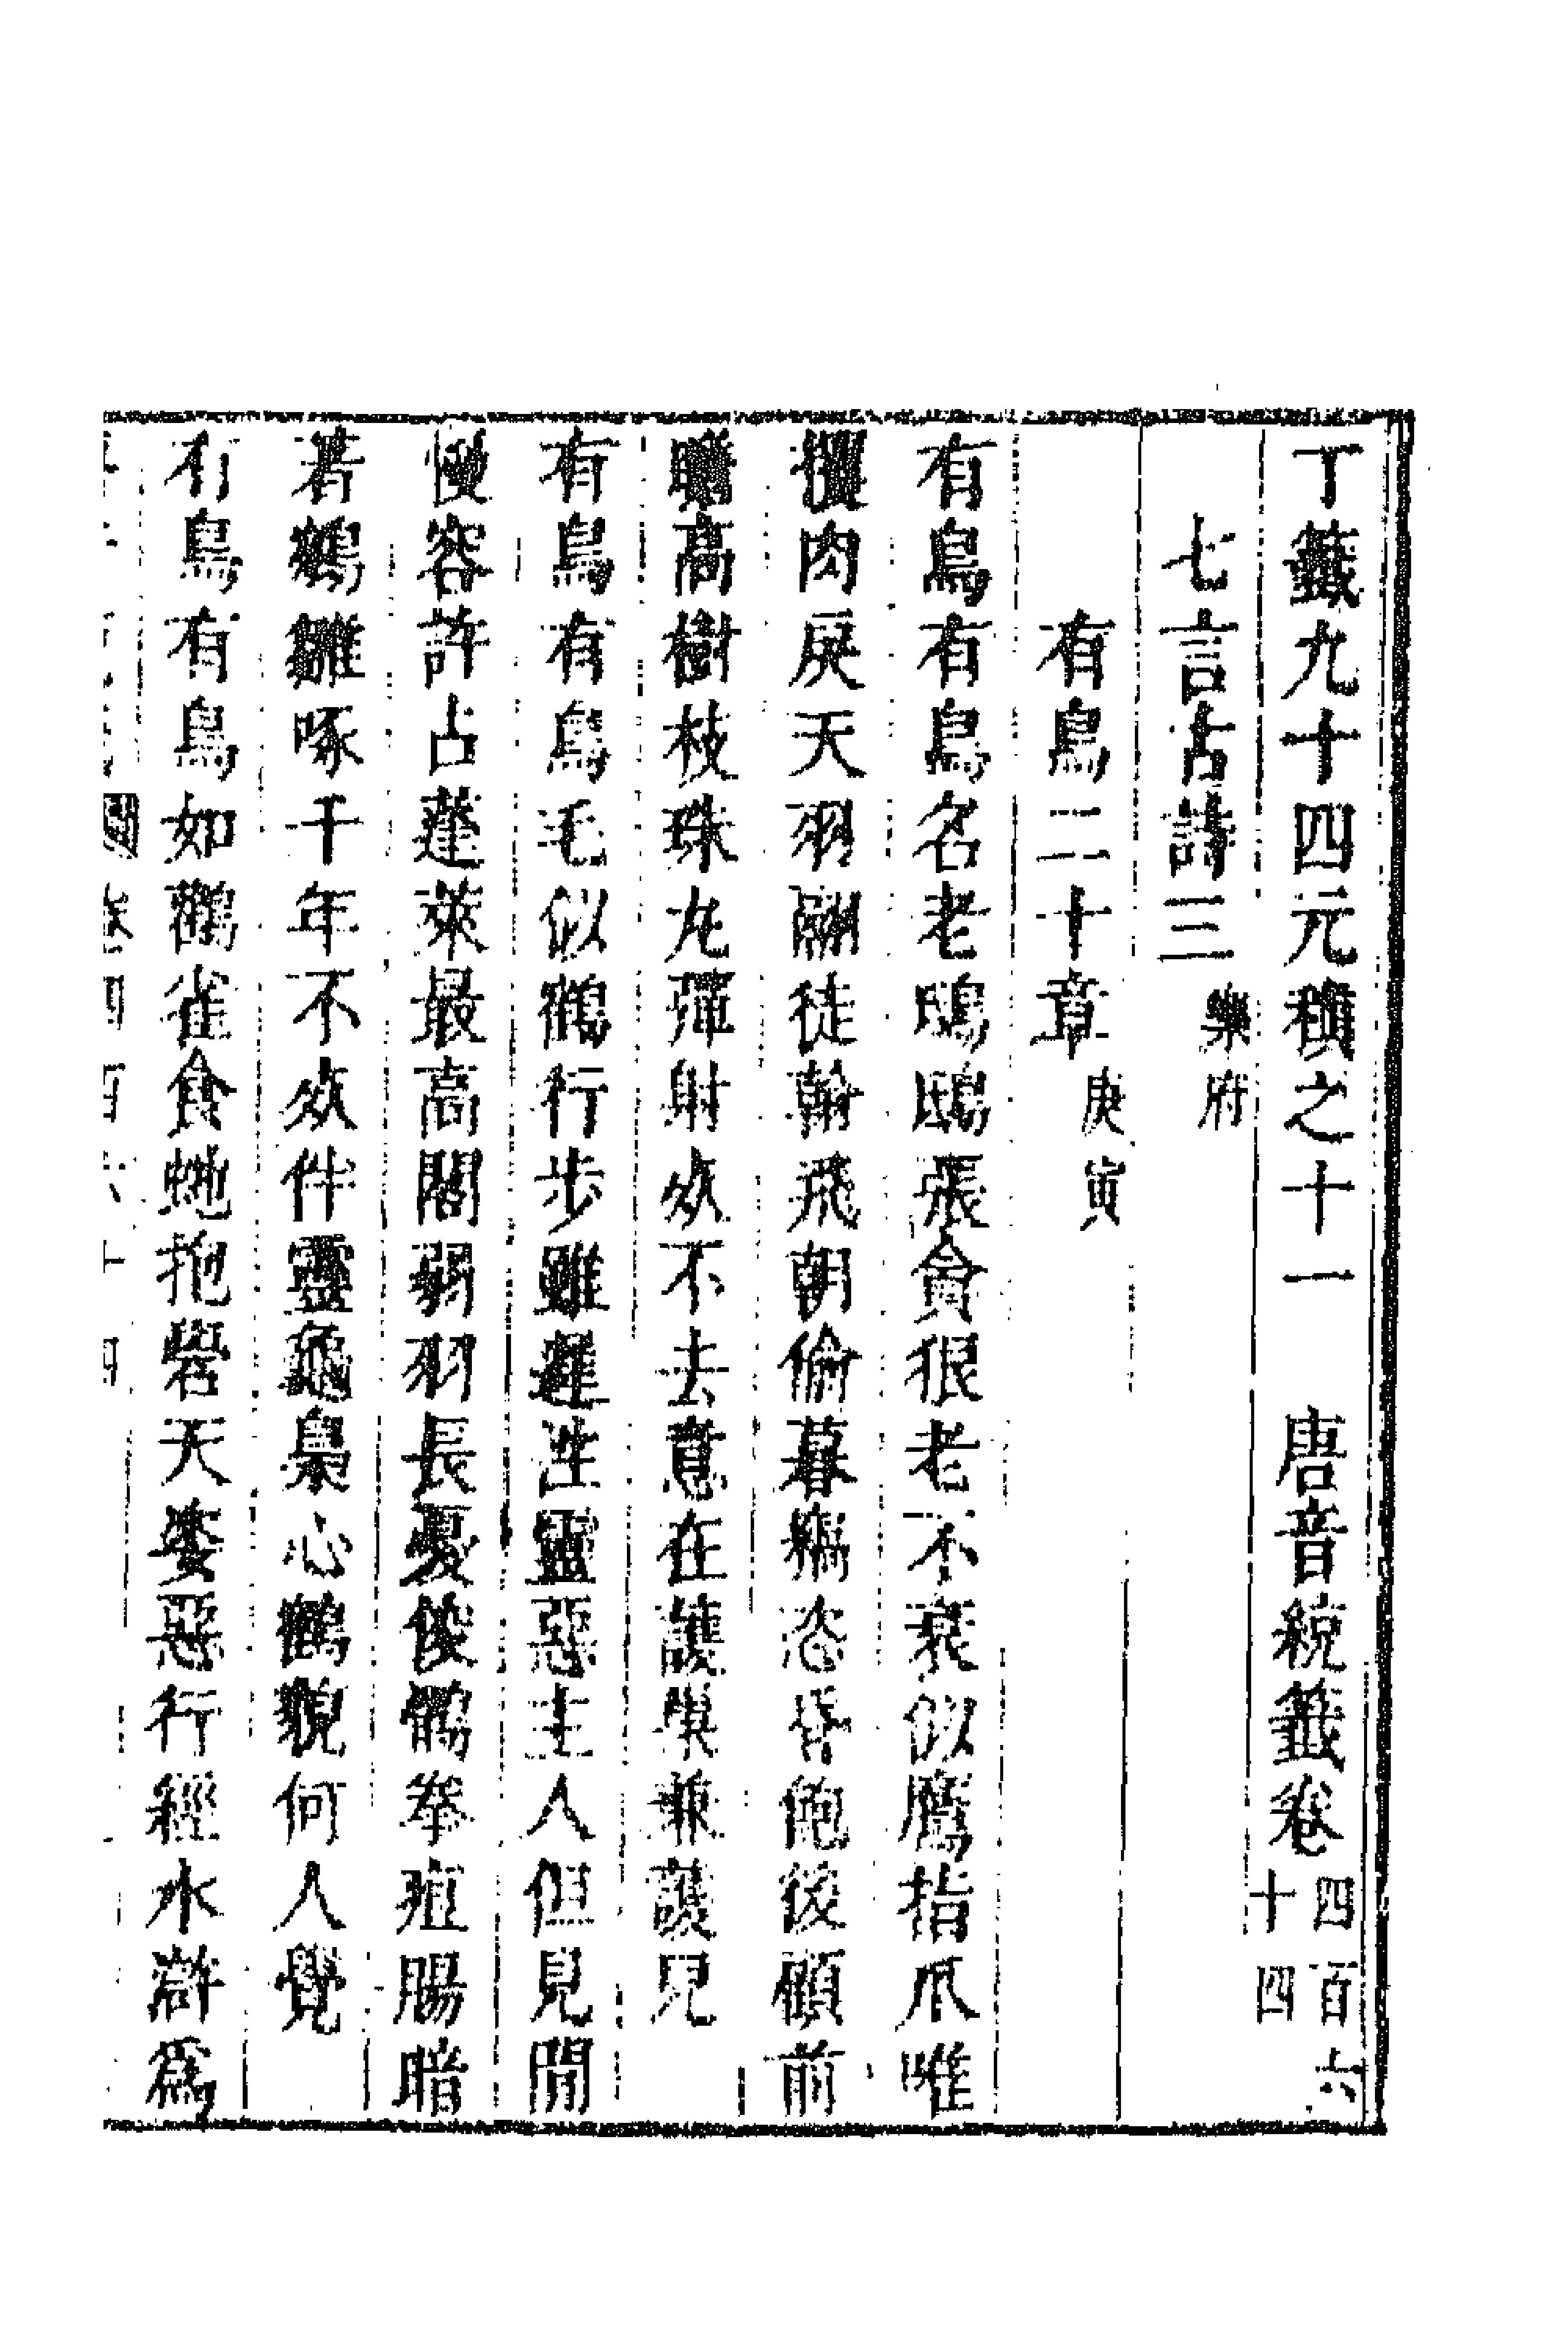 丁籤九十四元稹之十一　唐音統籤卷四百六十四
七言古詩三樂府
有鳥二十章庚寅
有鳥有鳥名老鴟鴟張貪狠老不衰似鷹指爪唯
攫肉戾天羽翮徒翰飛朝偷暮竊恣昏飽後顧前
瞻高樹枝珠丸彈射歘不去意在護巢兼護兒
有鳥有鳥毛似鶴行步雖遲性靈惡主人但見閒
慢容許占蓬萊最高閣弱羽長憂俊鶻拳疽腸暗
著鵷雛啄千年不歘伴靈龜梟心鶴貌何人覺
有鳥有鳥如鸛雀食虵抱礐天姿惡行經水滸爲